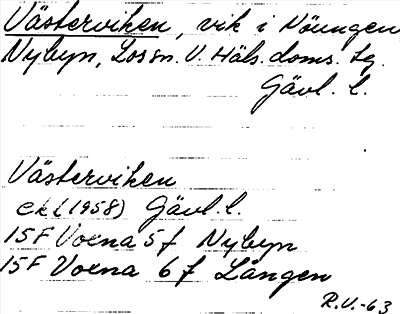 Västerviken, vik i Nöungen,
Nybyn, Lossn. V. Häls. doms. tg.
Gävl. l.
Västerviken
ek (1958) Gävl. l.
15F Voxna 5f Nybyn
15F Voxna 6f Lången
R.V.-63